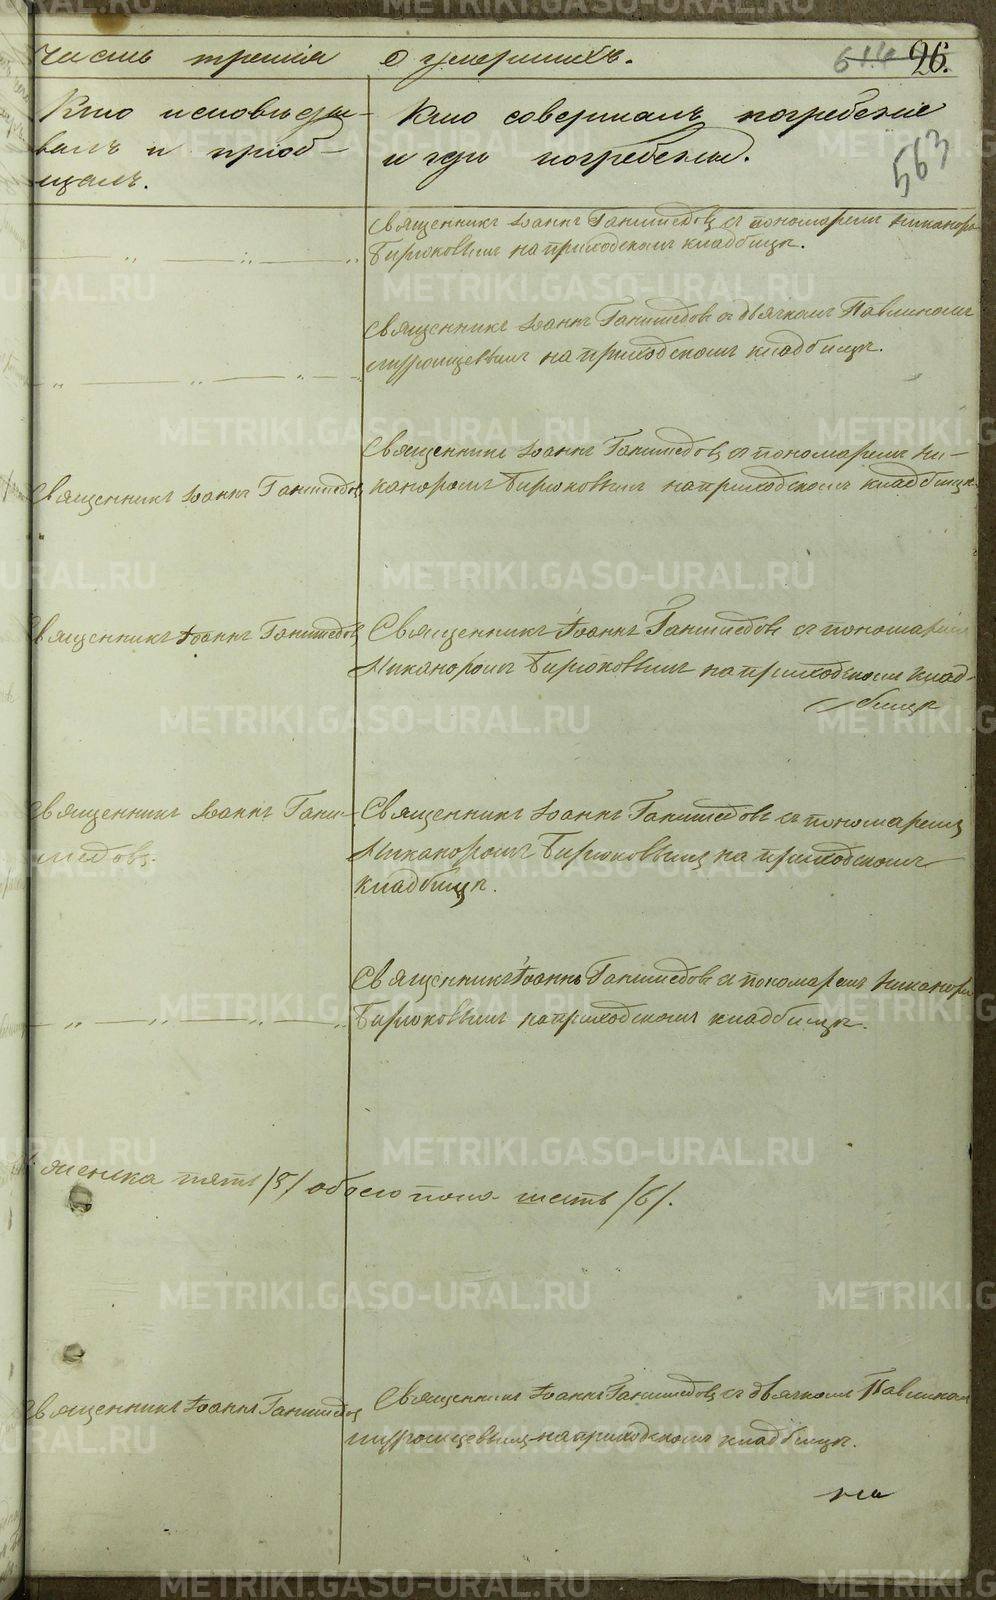 Часть третія О умершихъ. 614 26.
Кто исповѣды- Кто совершалъ погребеніе
валъ и пріоб- и гдѣ погребены. 563
щалъ.
Священникъ Іоаннъ Ганимедовъ съ пономаремъ Никанор
Бирюковымъ на приходскомъ кладбищѣ.
Священникъ Іоаннъ Ганимедовъ съ дьячкомъ Павлиномъ
на приходскомъ кладбищѣ.
Священникъ Іоаннъ Ганимедовъ съ пономаремъ Ни-
Священникъ Іоаннъ Ганимедовъ каноромъ Бирюковымъ на приходскомъ кладбищѣ
Священникъ Іоаннъ Ганимедовъ Священникъ Іоаннъ Ганимедовъ съ пономаремъ
Никаноромъ Бирюковымъ на приходскомъ клад-
бищѣ
Священникъ Іоаннъ Гани- Священникъ Іоаннъ Ганимедовъ съ пономаремъ
медовъ. Никаноромъ Бирюковымъ на приходскомъ
кладбищѣ.
Священникъ Іоаннъ Ганимедовъ съ пономаремъ Никанор
Бирюковымъ на приходскомъ кладбищѣ.
женска пять /5/ обоего пола шесть /6/.
Священникъ Іоаннъ Ганимедовъ Священникъ Іоаннъ Ганимедовъ съ дьячкомъ Павлином
на приходскомъ кладбищѣ.
METRIKI.GASO-URAL.RU